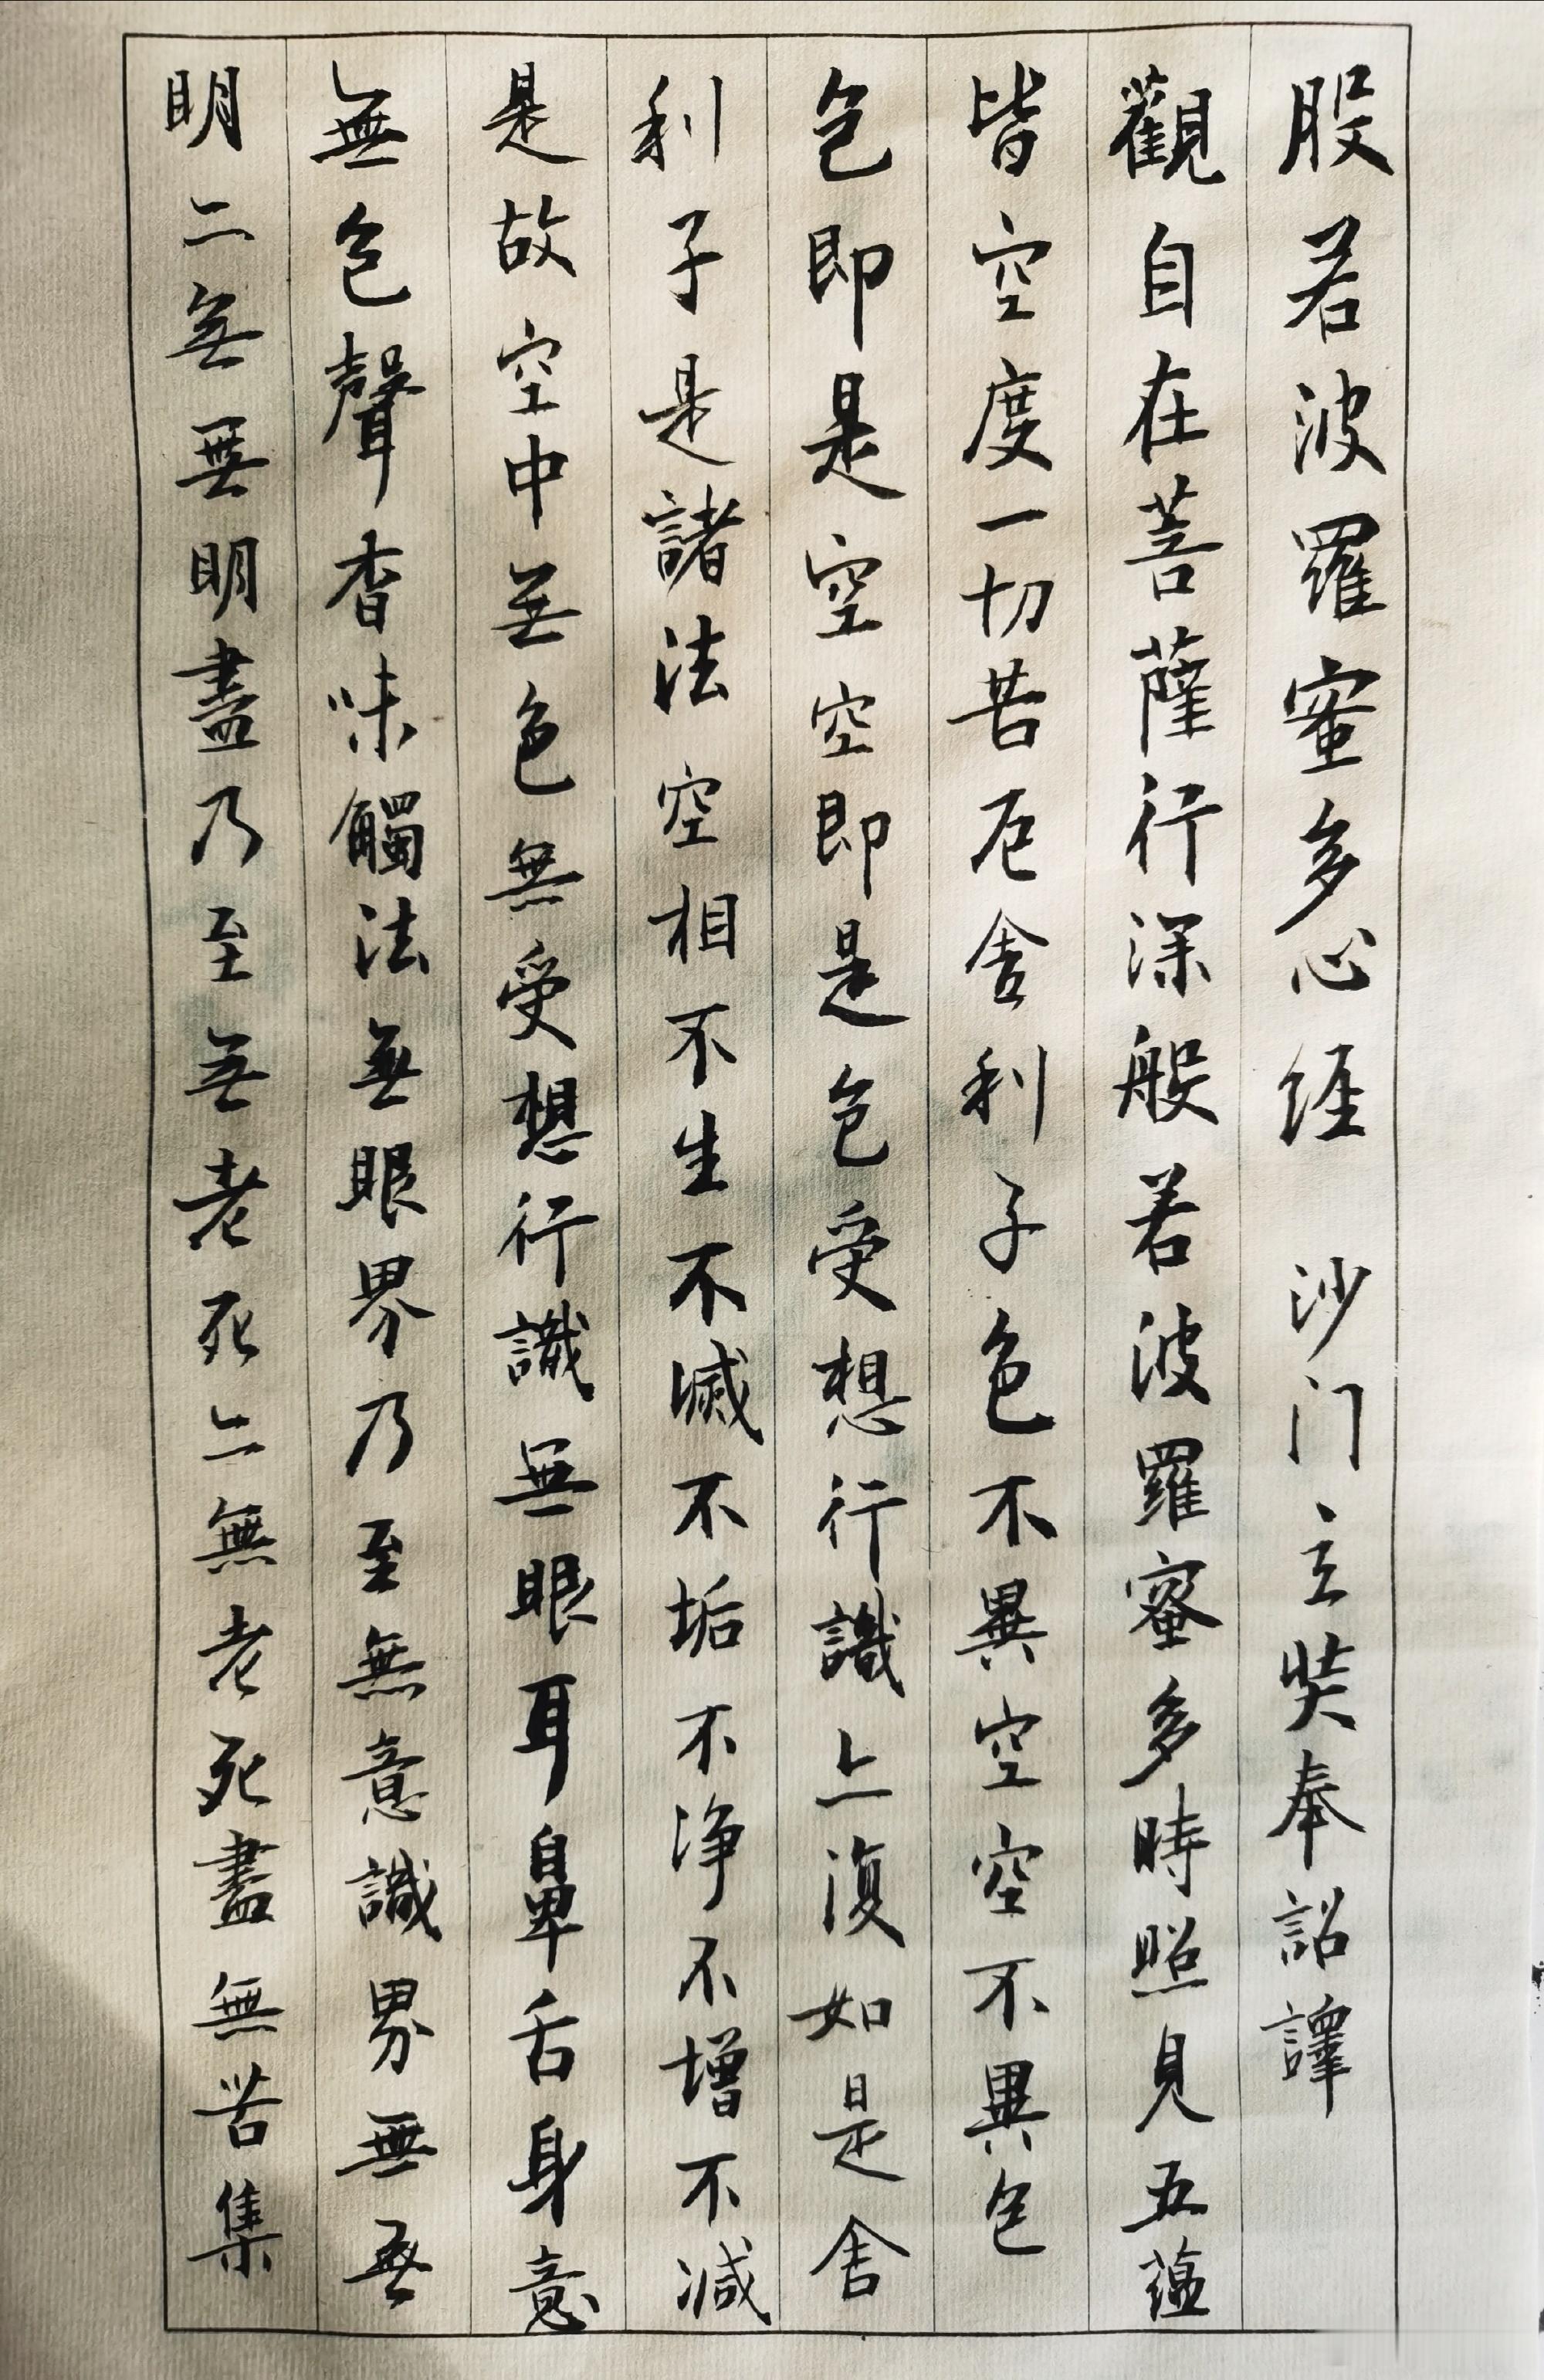 般若波羅蜜多心經 沙门玄奘奉詔譯
觀自在菩薩行深般若波羅蜜多時照見五蘊
皆空度一切苦厄舍利子色不異空空不異色
色即是空空即是色受想行識亦復如是舍
利子是諸法空相不生不滅不垢不净不增不減
是故空中無色無受想行識無眼耳鼻舌身意
無色聲香味觸法無眼界乃至無意識界無無
明亦無無明盡乃至無老死亦無老死盡無苦集